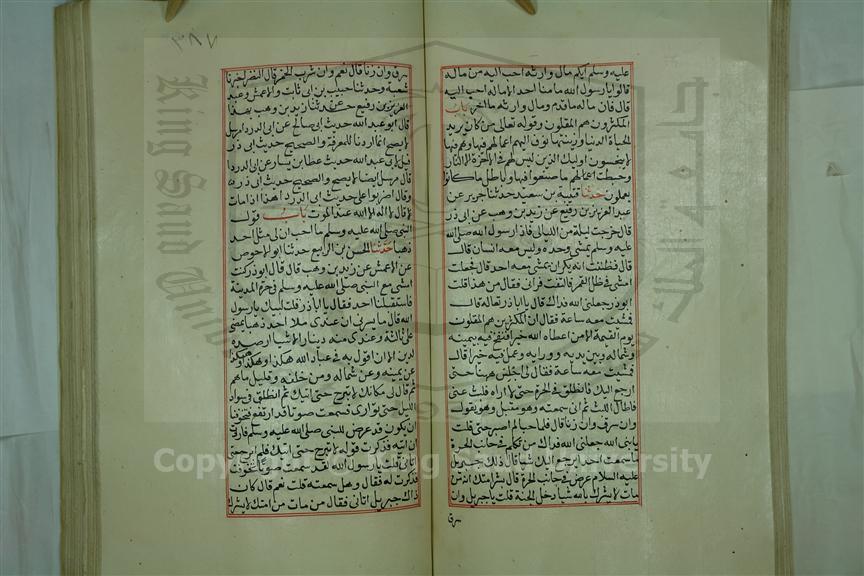 عليه وسلم ايكم مال وارثه احب اليه من ماله
قالوا يا رسول الله ما منا احد الا ماله احب اليه
قال فان ماله ما قدم ومال وارثه ما اخر باب
المكثرون هم المقلون وقوله تعالى من كان يريد
الحياة الدنيا وزينتها نوف اليهم اعمالهم فيها وهم فيها
لا يبخسون اوليك الذين ليس لهم في الاخرة الا النار
وحبطت اعمالهم ما صنعوا فيها وباطل ما كانوا
يعملون حدثنا قتيبة بن سعيد حدثنا جرير عن
عبد العزيز بن رفيع عن زيد بن وهب عن ابي ذر
قال خرجت ليلة من الليالي فاذا رسول الله صلى الله
عليه وسلم يمشي وحده وليس معه انسان قال
قال فظننت انه يكره ان يمشي معه احد قال فجعلت
امشي في ظل القمر فالتفت فراني فقال من هذا قلت
ابو ذر جعلني الله فداك قال يا ابا ذر تعاله قال
فمشيت معه ساعة فقال ان المكثرين هم المقلون
يوم القيمة الا من اعطاه الله خيرا فنفح فيه يمينه
وشماله وبين يديه ووراءه وعمل فيه خيرا قال
فمشيت معه ساعة فقال لي اجلس ههنا حتى
ارجع اليك فانطلق في الحرة حتى لا اراه فلبث عني
فاطال اللبث ثم اني سمعته وهو مقبل وهو يقول
وان سرق وان زنا قال فلما جا لم اصبر حتى قلت
يا نبي الله جعلني الله فداك من تكلم في جانب الحرة
ما سمعت احدا يرجع اليك شيا قال ذلك جبريل
عليه السلام عرض في جانب الحرة قال بشر امتك انه من
مات لا يشرك بالله شيا دخل الجنة قلت يا جبريل وان
سرق
٣٨٧
سرق وان زنا قال نعم وان شرب الخمر قال النضر اخبرنا
شعبة وحدثنا حبيب بن ابي ثابت والاعمش وعبد
العزيز بن رفيع حدثنا زيد بن وهب بهذا
قال ابو عبد الله حديث ابي صالح عن ابي الدردا مرسل
لا يصح انما اردنا للمعرفة والصحيح حديث ابي ذر
قيل لابي عبد الله حديث عطا بن يسار عن ابي الدردا
قال مرسل ايضا لا يصح والصحيح حديث ابي ذر
وقال اضربوا على حديث ابي الدردا هذا اذا مات
لا قال لا اله الا الله عند الموت باب قول
النبي صلى الله عليه وسلم ما احب ان لي مثل احد
ذهبا حدثنا الحسن بن الربيع حدثنا ابو الاحوص
عن الاعمش عن زيد بن وهب قال قال ابو ذر كنت
امشي مع النبي صلى الله عليه وسلم في حرة المدينة
فاستقبلنا احد فقال يا ابا ذر قلت لبيك يا رسول
الله قال ما يسرني ان عندي مثل احد ذهبا تمضي
علي ثالثة وعندي منه دينار الا شيا ارصده
لدين الا ان اقول به في عباد الله هكذا وهكذا وهكذا
عن يمينه وعن شماله ومن خلفه وقليل ما هم
ثم قال لي مكانك لا تبرح حتى اتيك ثم انطلق في سواد
الليل حتى توارى فسمعت صوتا قد ارتفع فتخوفنا
ان يكون قد عرض للنبي صلى الله عليه وسلم فاردت
ان اتيه فذكرت قوله لا تبرح حتى اتيك فلم ابرح حتى
اتاني قلت يا رسول الله لقد سمعت صوتا تخوفت
فذكرت له فقال وهل سمعته قلت نعم قال كان
ذاك جبريل اتاني فقال من مات من امتك لا يشرك
Copyright © King Saud University
King Saud University